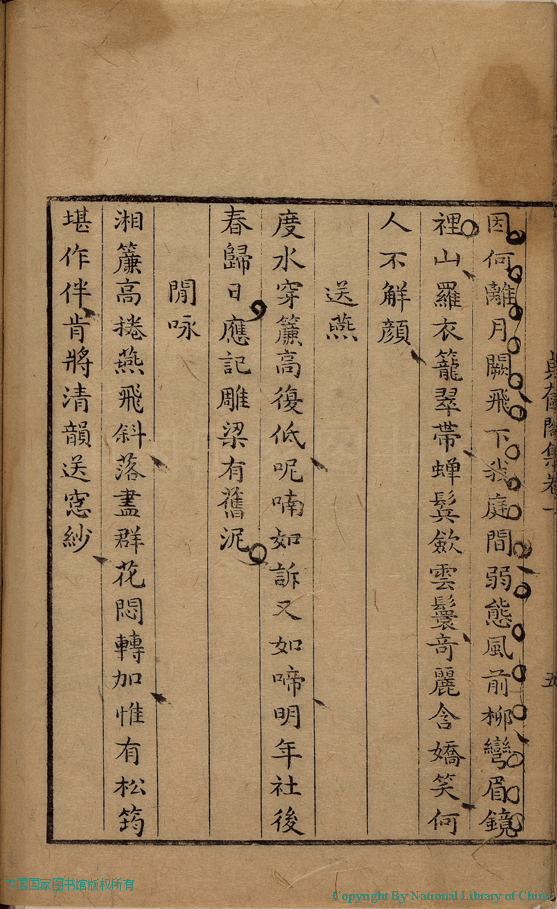 因何離月闕飛下我庭間弱態風前柳彎眉鏡
裡山羅衣籠翠帶蟬鬂歛雲鬟奇麗含嬌笑何
人不解顔
送燕
度水穿簾高復低呢喃如訴又如啼明年社後
春歸日應記雕梁有舊泥
閒咏
湘簾高捲燕飛斜落盡群花悶轉加惟有松筠
堪作伴肯將清韻送窓紗
中国国家图书馆版权所有
Copyright By National Library of China